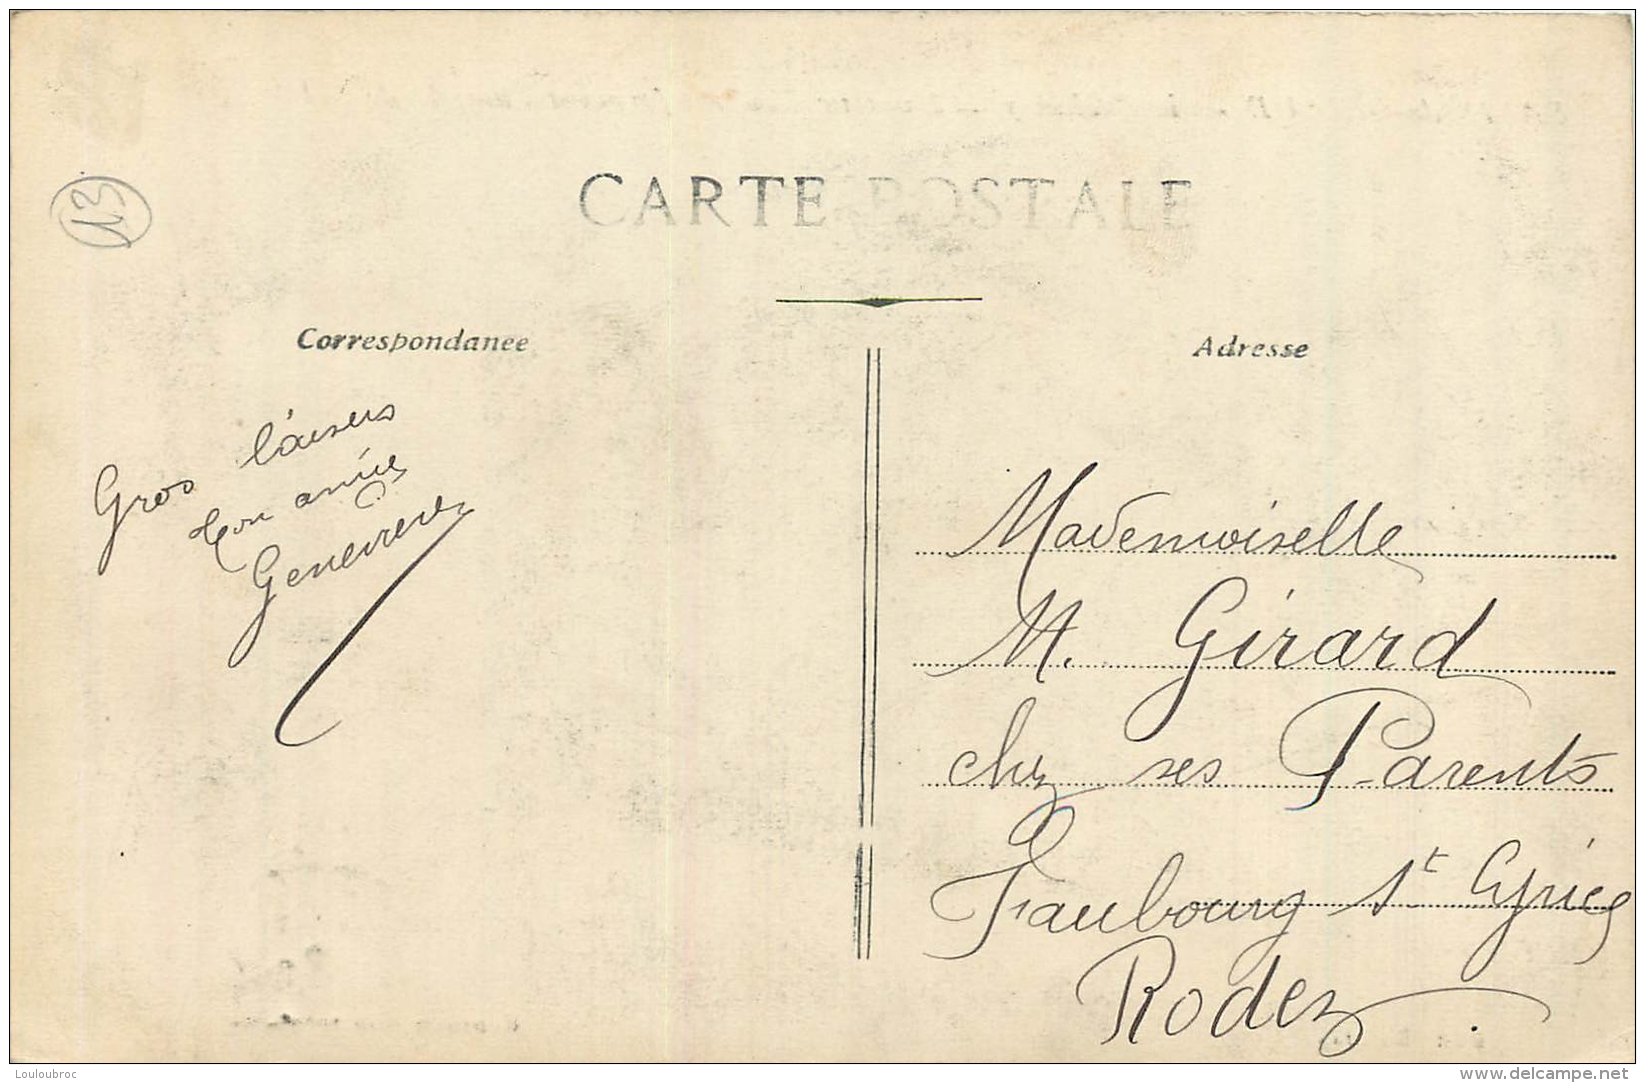 13
CARTE POSTALE
Correspondance
Gros baisers
ton amie
Geneviève
Adresse
Mademoiselle
M. Girard
chez ses Parents
Faubourg St Cyrice
Rodez
Louloubroc
www.delcampe.net